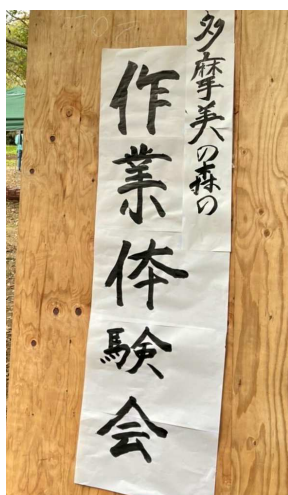 多摩美の森の
作業体験会